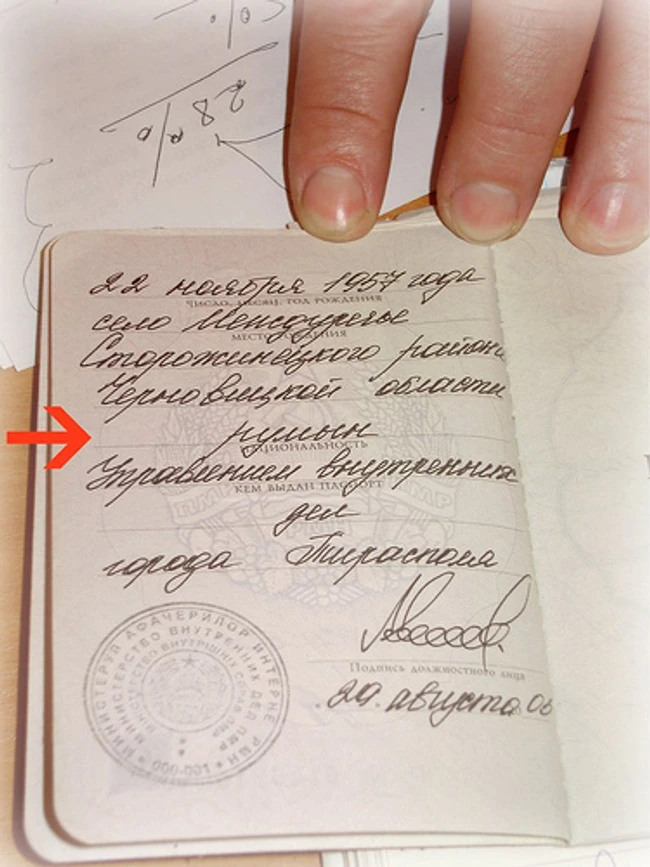 %
28%
22 ноября 1957 года
ЧИСЛО, МЕСЯЦ, ГОД РОЖДЕНИЯ
село Межуречье
МЕСТО РОЖДЕНИЯ
Сторожинецкого района
Черновицкой области
румын
НАЦИОНАЛЬНОСТЬ
Управлением внутренних
КЕМ ВЫДАН ПАСПОРТ
ПМР ПМР
дел
города Тирасполя
Подпись должностного лица
29. августа 06
МИНИСТЕРУЛ АФАЧЕРИЛОР ИНТЕРНЕ РМН
МИНИСТЕРСТВО ВНУТРЕННИХ ДЕЛ ПМР
МІНІСТЕРСТВО ВНУТРІШНІХ СПРАВ ПМР
000-001